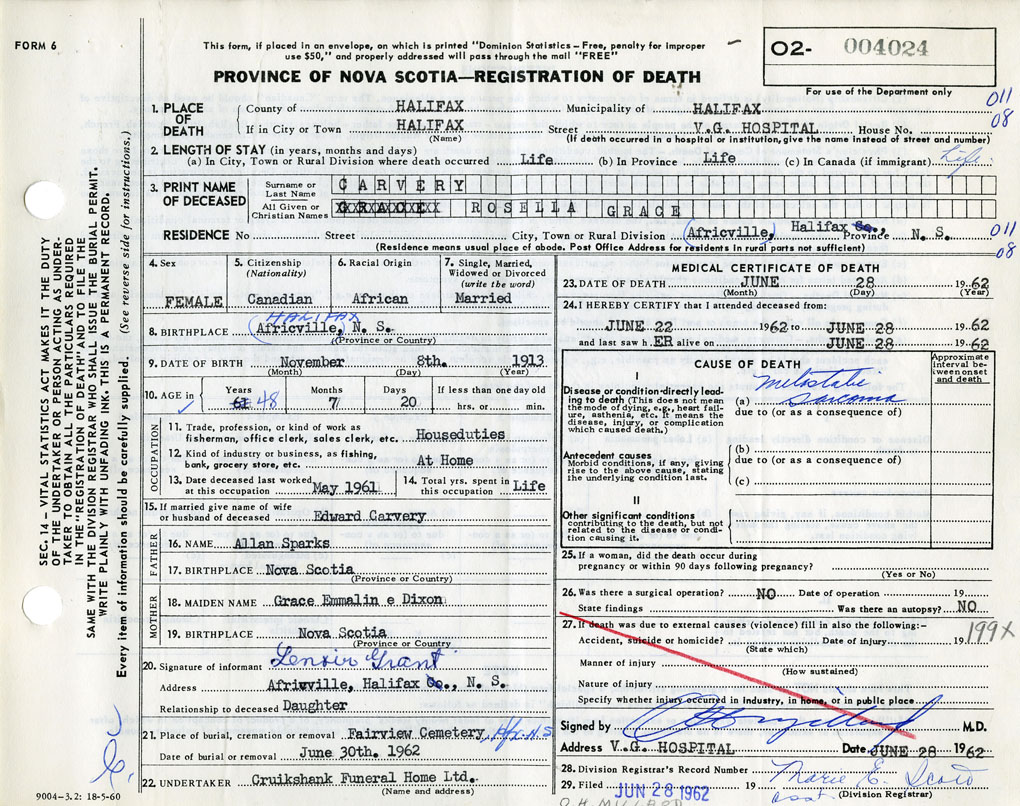 FORM 6
This form, if placed in an envelope, on which is printed "Dominion Statistics – Free, penalty for improper
use $50," and properly addressed will pass through the mail "FREE"
PROVINCE OF NOVA SCOTIA—REGISTRATION OF DEATH
02- 004024
For use of the Department only
011
08
1. PLACE OF DEATH
County of HALIFAX Municipality of HALIFAX
If in City or Town HALIFAX Street V.G. HOSPITAL House No.
(Name) (If death occurred in a hospital or institution, give the name instead of street and number)
2. LENGTH OF STAY (in years, months and days)
(a) In City, Town or Rural Division where death occurred Life (b) In Province Life (c) In Canada (if immigrant) Life
3. PRINT NAME OF DECEASED
Surname or Last Name CARVERY
All Given or Christian Names GRACE ROSELLA GRACE
RESIDENCE No Street City, Town or Rural Division (Africville, Halifax Co., Province N. S.
011
08
(Residence means usual place of abode. Post Office Address for residents in rural parts not sufficient)
4. Sex
FEMALE
5. Citizenship
(Nationality)
Canadian
6. Racial Origin
African
7. Single, Married,
Widowed or Divorced
(write the word)
Married
HALIFAX
8. BIRTHPLACE (Africville, N. S.
(Province or Country)
9. DATE OF BIRTH November 8th. 1913
(Month) (Day) (Year)
10. AGE in
Years Months Days If less than one day old
61 48 7 20 hrs. or min.
OCCUPATION
11. Trade, profession, or kind of work as
fisherman, office clerk, sales clerk, etc. Houseduties
12. Kind of industry or business, as fishing,
bank, grocery store, etc. At Home
13. Date deceased last worked
at this occupation May 1961
14. Total yrs. spent in
this occupation Life
15. If married give name of wife
or husband of deceased Edward Carvery
FATHER
16. NAME Allan Sparks
17. BIRTHPLACE Nova Scotia
(Province or Country)
MOTHER
18. MAIDEN NAME Grace Emmalin e Dixon
19. BIRTHPLACE Nova Scotia
(Province or Country)
20. Signature of informant Grant
Address Afriwville, Halifax Co., N. S.
Relationship to deceased Daughter
21. Place of burial, cremation or removal Fairview Cemetery, Hfx. N.S
Date of burial or removal June 30th. 1962
22. UNDERTAKER Cruikshank Funeral Home Ltd.
(Name and address)
9004–3.2: 18-5-60
MEDICAL CERTIFICATE OF DEATH
23. DATE OF DEATH JUNE 28 1962
(Month) (Day) (Year)
24. I HEREBY CERTIFY that I attended deceased from:
JUNE 22 1962 to JUNE 28 1962
and last saw h ER alive on JUNE 28 1962
CAUSE OF DEATH
Approximate interval between onset and death
I
Disease or condition directly leading
to death (This does not mean
the mode of dying, e.g., heart failure,
asthenia, etc. It means the
disease, injury, or complication
which caused death.)
(a) Metastatic
sarcoma
due to (or as a consequence of)
Antecedent causes
Morbid conditions, if any, giving
rise to the above cause, stating
the underlying condition last.
(b)
due to (or as a consequence of)
(c)
II
Other significant conditions
contributing to the death, but not
related to the disease or condition
causing it.
25. If a woman, did the death occur during
pregnancy or within 90 days following pregnancy?
(Yes or No)
26. Was there a surgical operation? NO Date of operation 19
State findings Was there an autopsy? NO
27. If death was due to external causes (violence) fill in also the following:–
Accident, suicide or homicide? Date of injury 19
199X
(State which)
Manner of injury
(How sustained)
Nature of injury
Specify whether injury occurred in industry, in home, or in public place
Signed by M.D.
Address V.G. HOSPITAL Date JUNE 28 1962
28. Division Registrar's Record Number
29. Filed JUN 28 1962 19 Marie E. Scott
asst. (Division Registrar)
SEC. 14 – VITAL STATISTICS ACT MAKES IT THE DUTY
OF THE UNDERTAKER OR PERSON ACTING AS UNDERTAKER
TO OBTAIN ALL THE PARTICULARS REQUIRED
IN THE "REGISTRATION OF DEATH" AND TO FILE THE
SAME WITH THE DIVISION REGISTRAR WHO SHALL ISSUE THE BURIAL PERMIT.
WRITE PLAINLY WITH UNFADING INK. THIS IS A PERMANENT RECORD.
Every item of information should be carefully supplied. (See reverse side for instructions.)